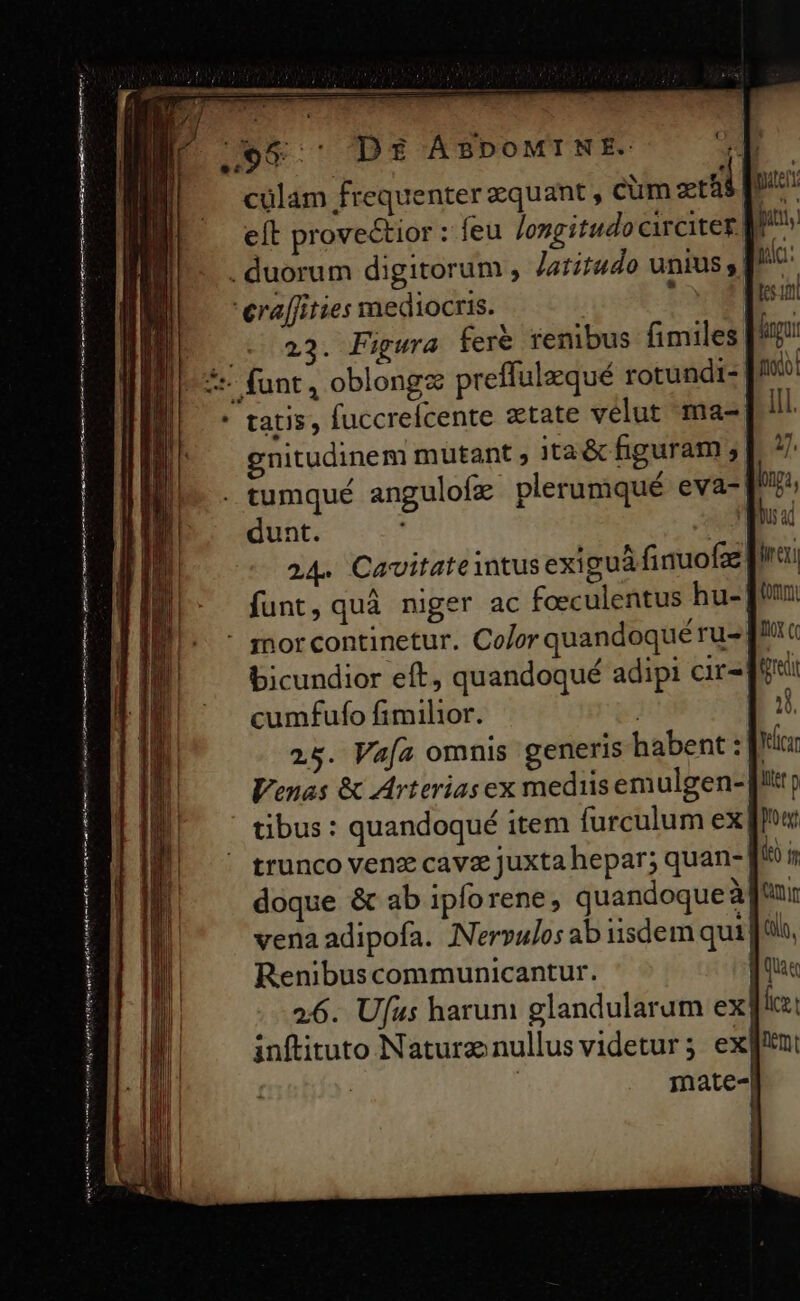 96 DE ABDOMINE.
culam frequenter æquant, cùm ætas
eſt provectior : ſeu longitudo circiter
duorum digitorum, latitudo unius,
craſſities mediocris.
23. Figura ferè renibus ſimiles
ſunt, oblongæ preſſulæqué rotundi-
tatis, ſuccreſcente ætate velut ma-
gnitudinem mutant, ita & figuram,
tumqué anguloſæ plerumqué eva-
dunt.
24. Cavitate intus exiguâ ſinuoſæ
ſunt, quâ niger ac fœculentus hu-
mor continetur. Color quandoqué ru-
bicundior eſt, quandoqué adipi cir-
cumfuſo ſimilior.
25. Vaſa omnis generis habent :
Venas & Arterias ex mediis emulgen-
tibus : quandoqué item ſurculum ex
trunco venæ cavæ juxta hepar; quan-
doque & ab ipſo rene, quandoque à
vena adipoſa. Nervulos ab iisdem qui
Renibus communicantur.
26. Uſus harum glandularum ex
inſtituto Naturæ nullus videtur; ex
mate-